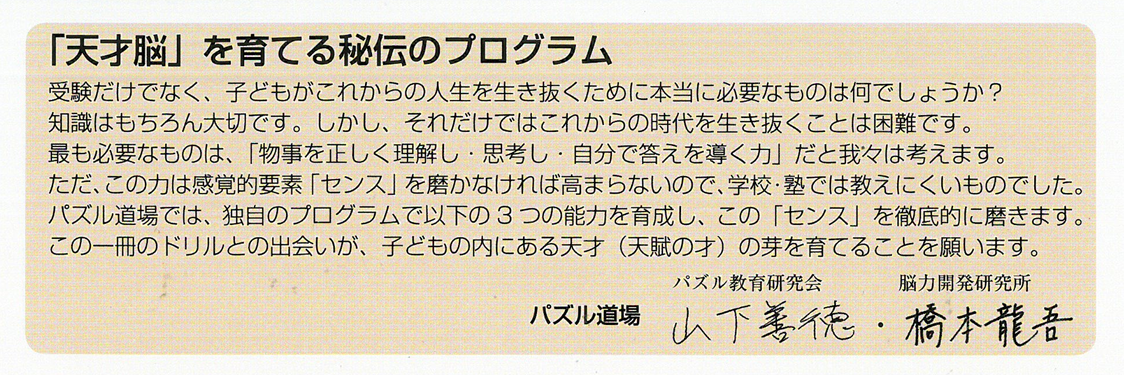 「天才脳」を育てる秘伝のプログラム
受験だけでなく、子どもがこれからの人生を生き抜くために本当に必要なものは何でしょうか？
知識はもちろん大切です。しかし、それだけではこれからの時代を生き抜くことは困難です。
最も必要なものは、「物事を正しく理解し・思考し・自分で答えを導く力」だと我々は考えます。
ただ、この力は感覚的要素「センス」を磨かなければ高まらないので、学校・塾では教えにくいものでした。
パズル道場では、独自のプログラムで以下の３つの能力を育成し、この「センス」を徹底的に磨きます。
この一冊のドリルとの出会いが、子どもの内にある天才（天賦の才）の芽を育てることを願います。
パズル教育研究会　脳力開発研究所
パズル道場　山下善徳・橋本龍吾